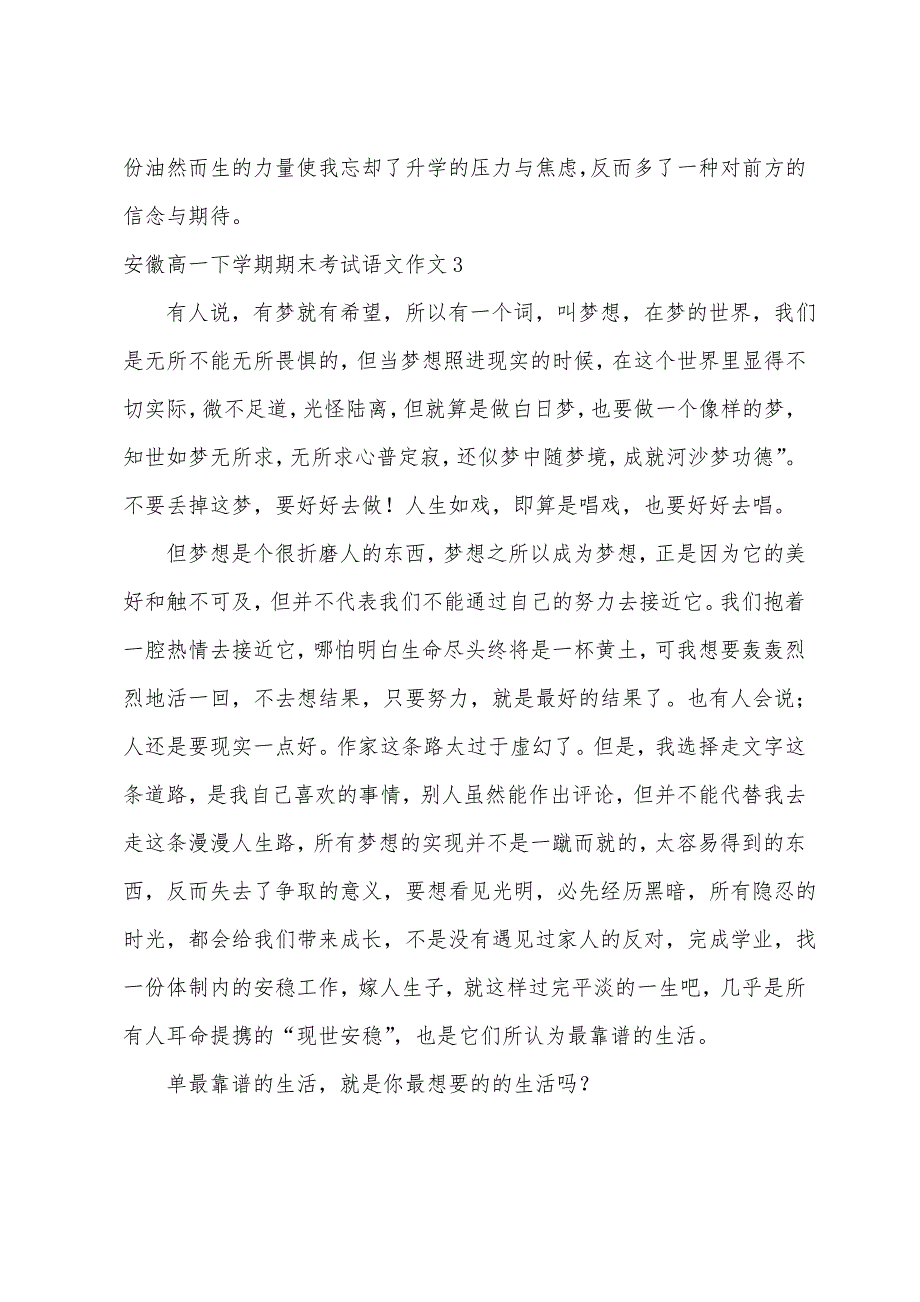 份油然而生的力量使我忘却了升学的压力与焦虑,反而多了一种对前方的
信念与期待。
安徽高一下学期期末考试语文作文3
有人说，有梦就有希望，所以有一个词，叫梦想，在梦的世界，我们
是无所不能无所畏惧的，但当梦想照进现实的时候，在这个世界里显得不
切实际，微不足道，光怪陆离，但就算是做白日梦，也要做一个像样的梦，
知世如梦无所求，无所求心普定寂，还似梦中随梦境，成就河沙梦功德”。
不要丢掉这梦，要好好去做！人生如戏，即算是唱戏，也要好好去唱。
但梦想是个很折磨人的东西，梦想之所以成为梦想，正是因为它的美
好和触不可及，但并不代表我们不能通过自己的努力去接近它。我们抱着
一腔热情去接近它，哪怕明白生命尽头终将是一杯黄土，可我想要轰轰烈
烈地活一回，不去想结果，只要努力，就是最好的结果了。也有人会说；
人还是要现实一点好。作家这条路太过于虚幻了。但是，我选择走文字这
条道路，是我自己喜欢的事情，别人虽然能作出评论，但并不能代替我去
走这条漫漫人生路，所有梦想的实现并不是一蹴而就的，太容易得到的东
西，反而失去了争取的意义，要想看见光明，必先经历黑暗，所有隐忍的
时光，都会给我们带来成长，不是没有遇见过家人的反对，完成学业，找
一份体制内的安稳工作，嫁人生子，就这样过完平淡的一生吧，几乎是所
有人耳命提携的“现世安稳”，也是它们所认为最靠谱的生活。
单最靠谱的生活，就是你最想要的的生活吗？